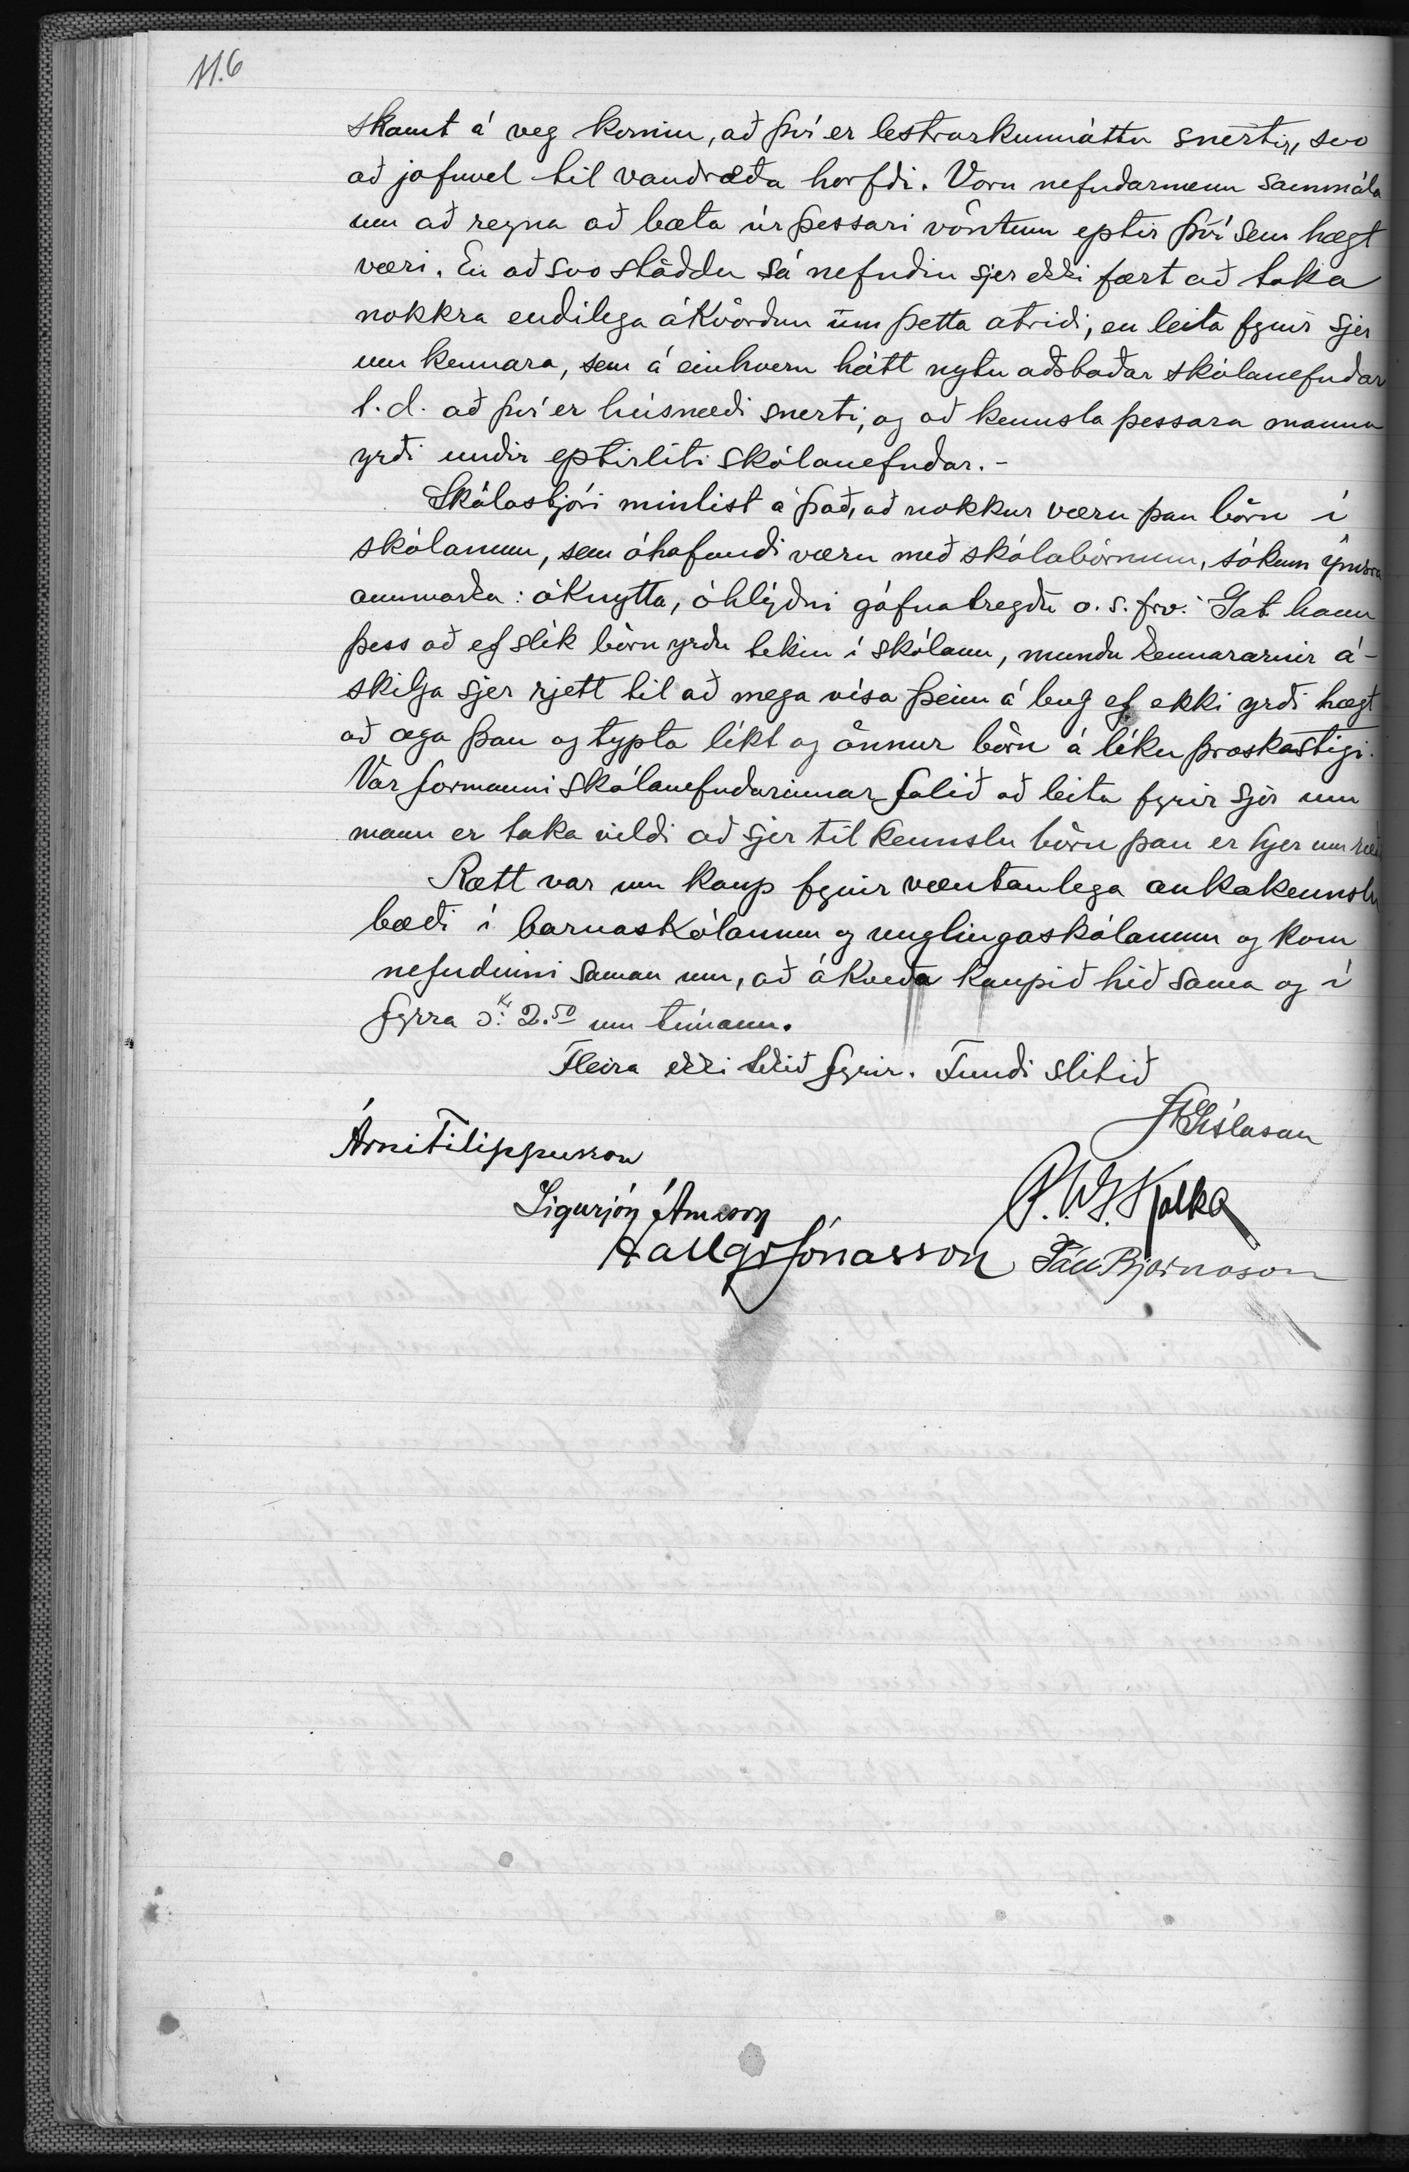 116
skamt á veg komin, að því er lestrarkunnáttu snertir, svo
að jafnvel til vandræða horfði. Voru nefndarmenn sammála
um að reyna að bæta úr þessari vöntun eptir því sem hægt
væri. En að svo stöddu sá nefndin sjer ekki fært að taka
nokkra endilega ákvörðun um þetta atriði, en leita fyrir sjer
um kennara, sem á einhvern hátt nytu aðstoðar skólanefndar
t.d. að því er húsnæði snerti, og að kennsla þessara manna
yrði undir eptirliti skólanefndar. -
Skólastjóri mintist á það, að nokkur væru þau börn í
skólanum, sem óhafandi væru með skólabörnum, sökum ýmsra
annmarka: óknytta, óhlýðni gáfnatregðu o. s. frv. Gat hann
þess að ef slík börn yrðu tekin í skólann, mundu kennararnir á-
skilja sjer rjett til að mega vísa þeim á bug ef ekki yrði hægt
að aga þau og typta líkt og önnur börn á líku þroskastigi.
Var formanni skólanefndarinnar falið að leita fyrir sjer um
mann er taka vildi að sjer til kennslu börn þau er hjer um ræðir
Rætt var um kaup fyrir væntanlega aukakennslu
bæði í barnaskólanum og unglingaskólanum og kom
nefndinni saman um, að ákveða kaupið hið sama og í
fyrra kr. 2.50 um tímann.
Fleira ekki tekið fyrir. Fundi slitið
Gíslason
Árni Filippusson
P. V. G. Kolka
Sigurjón Árnason
Hallgr Jónasson Páll Bjarnason